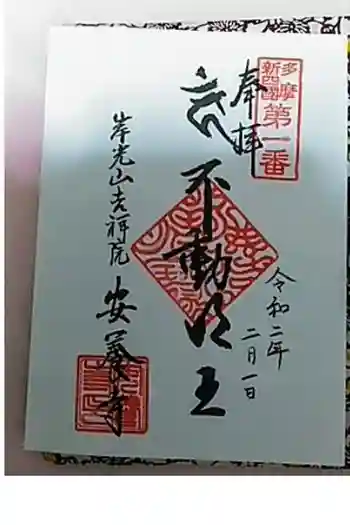 多摩
新四國
第一番
奉拝
不動明王
令和二年
二月一日
岸光山吉祥院
安養寺